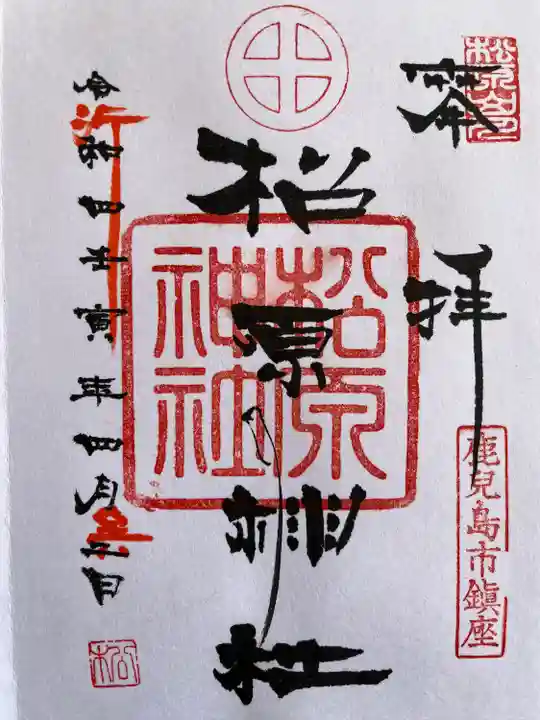 奉拝
鹿兒島市鎮座
松原神社
松原神社
令和四壬寅年四月日
松